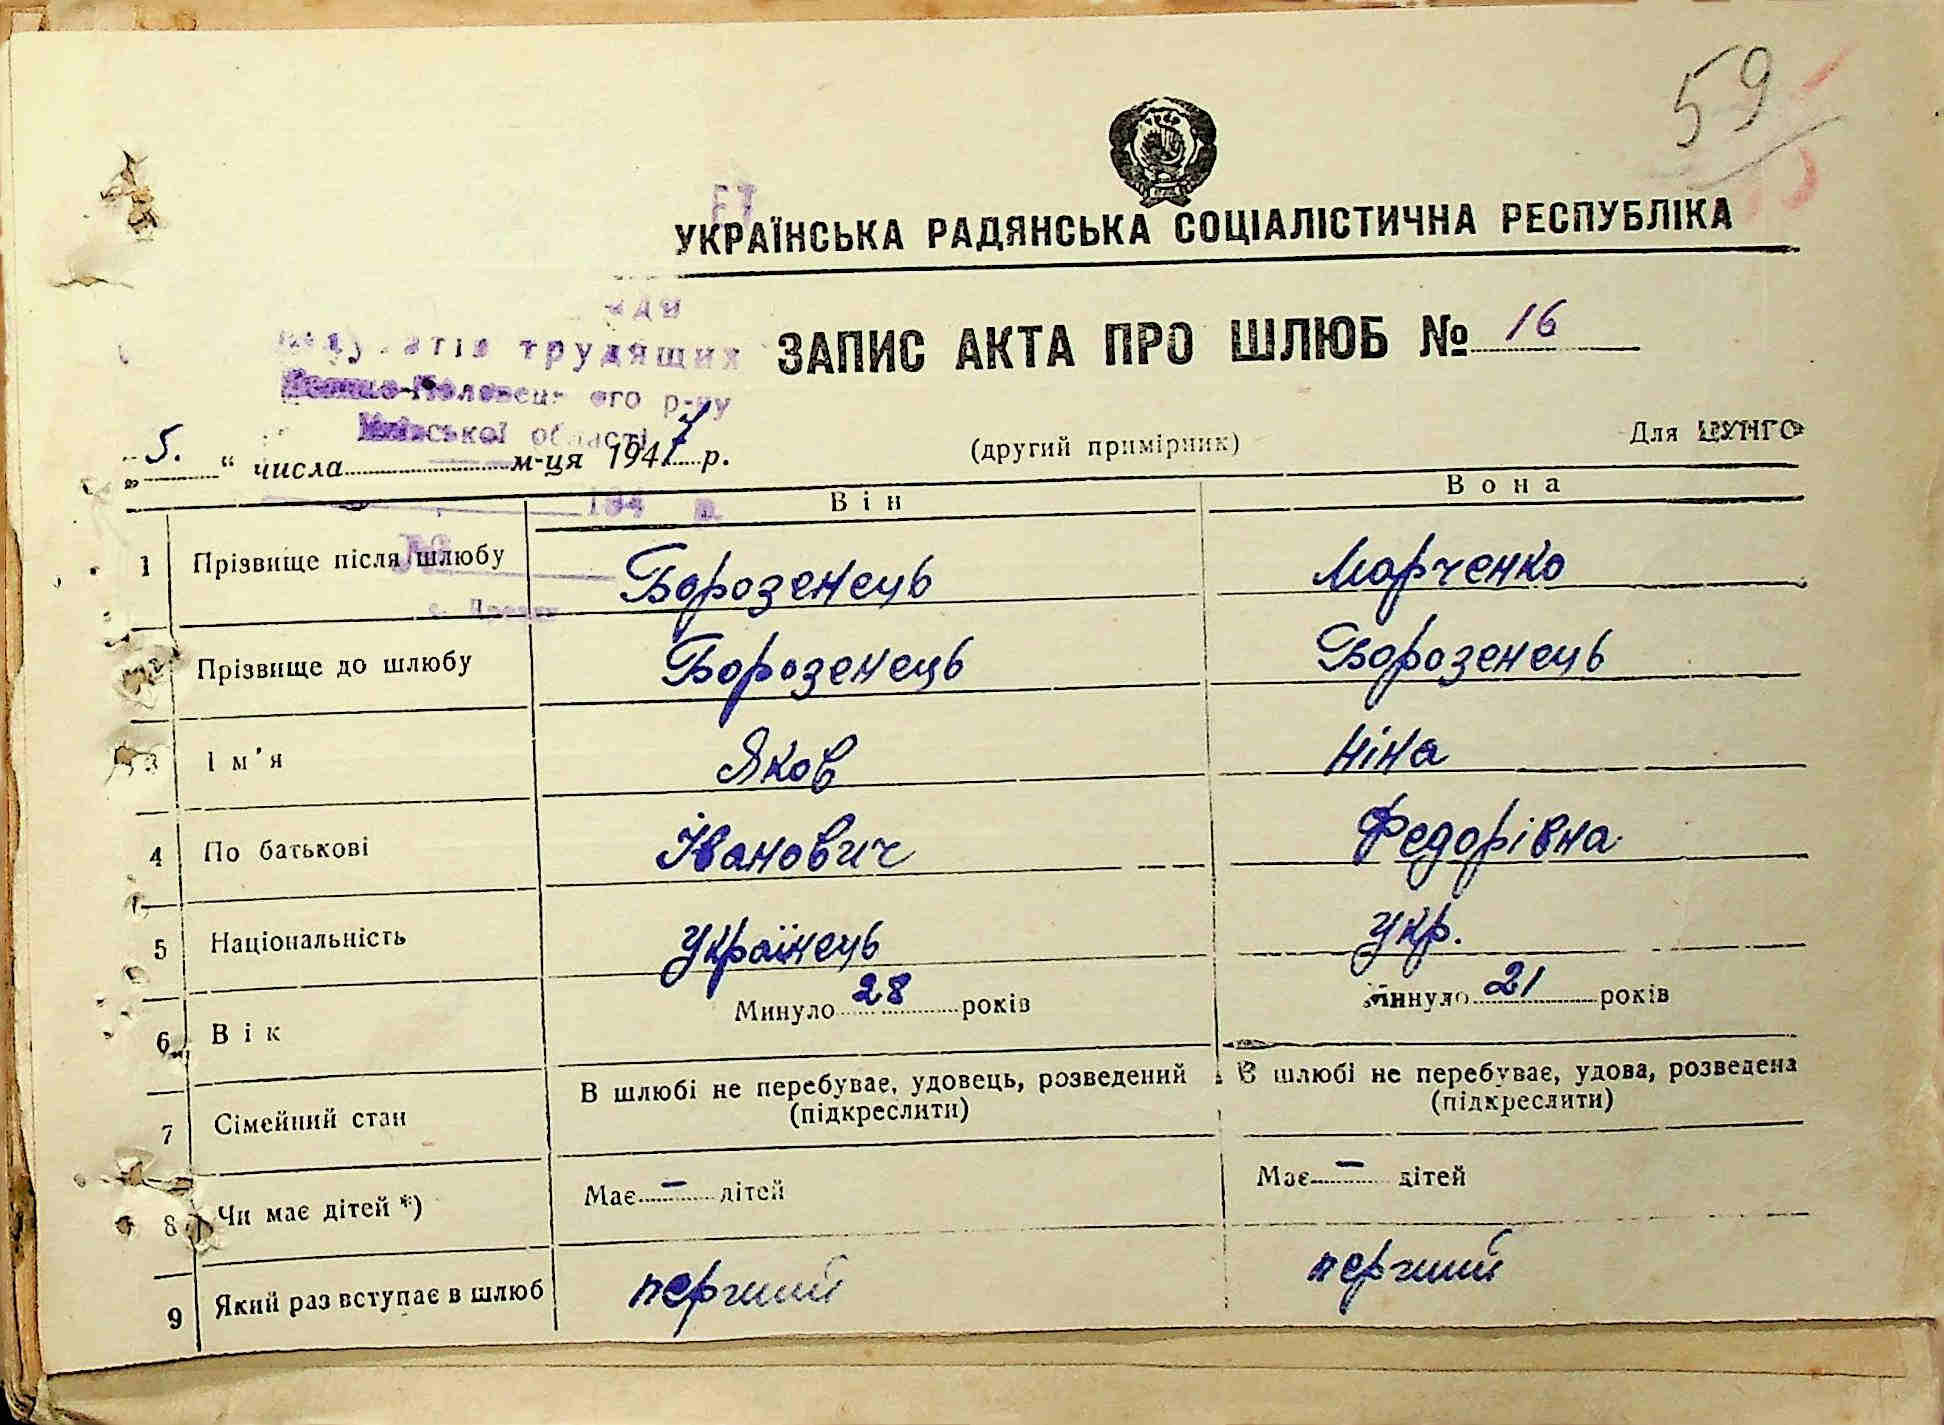 59
УКРАЇНСЬКА РАДЯНСЬКА СОЦІАЛІСТИЧНА РЕСПУБЛІКА
ЗАПИС АКТА ПРО ШЛЮБ № 16
трудящих
р-ну
області
„5.“ числа м-ця 1947 р.
(другий примірник)
Для ЦУНГО
194 р.
Він
Вона
1 Прізвище після шлюбу Борозенець Марченко
2 Прізвище до шлюбу Борозенець Борозенець
3 Ім'я Яков Ніна
4 По батькові Іванович Федорівна
5 Національність Українець Укр.
6 Вік Минуло 28 років Минуло 21 років
7 Сімейний стан В шлюбі не перебуває, удовець, розведений В шлюбі не перебуває, удова, розведена
(підкреслити) (підкреслити)
8 Чи має дітей *) Має — дітей Має — дітей
9 Який раз вступає в шлюб перший перший